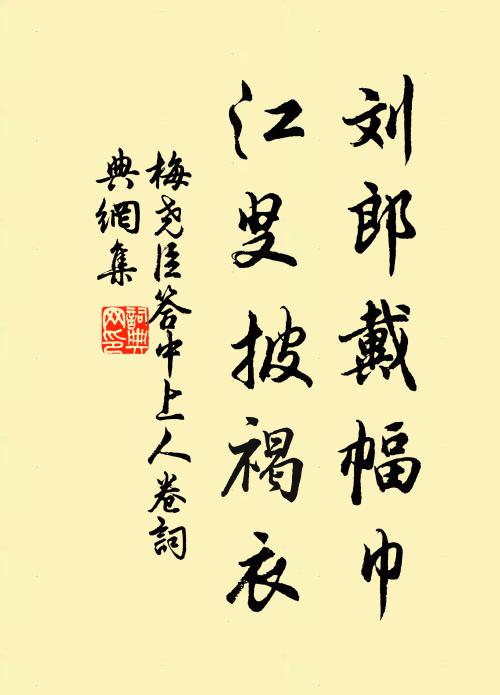 刘郎戴幅巾
江叟披褐衣
梅尧臣答中上人卷詞
典網集
詞典网印